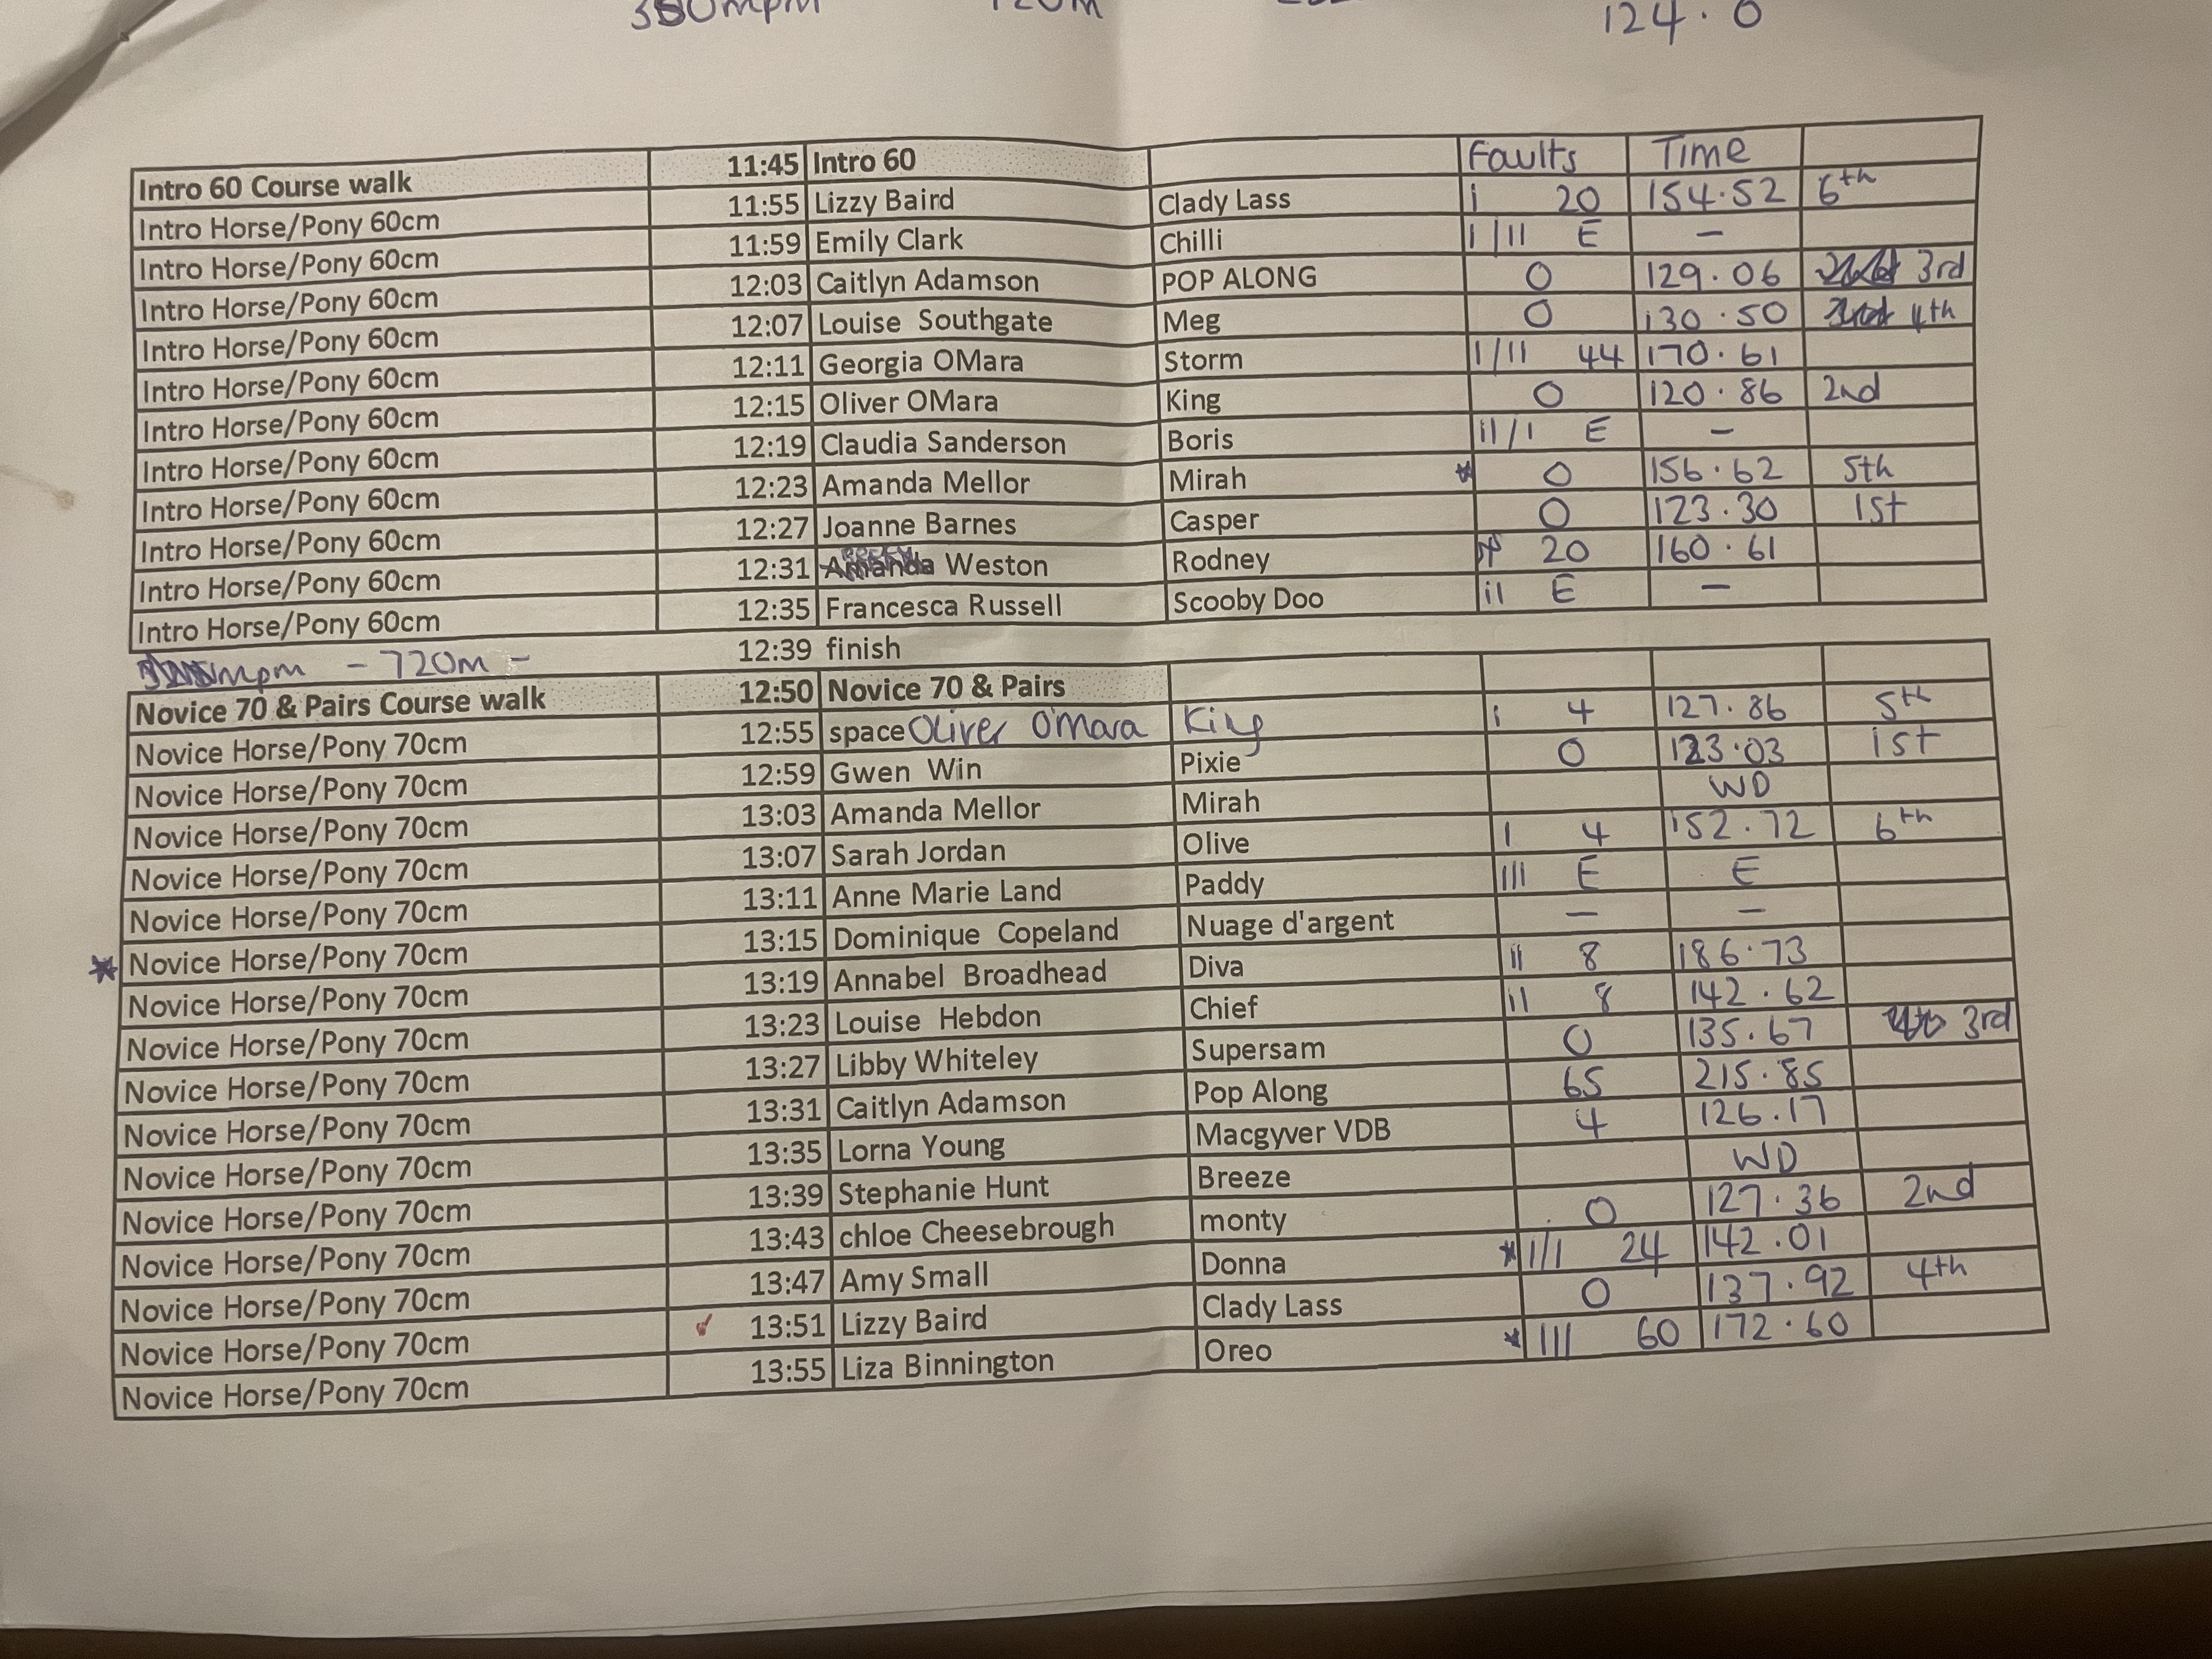 124.0
Intro 60 Course walk 11:45 Intro 60 Faults Time
Intro Horse/Pony 60cm 11:55 Lizzy Baird Clady Lass I 20 154.52 6th
Intro Horse/Pony 60cm 11:59 Emily Clark Chilli I/II E -
Intro Horse/Pony 60cm 12:03 Caitlyn Adamson POP ALONG 0 129.06 3rd
Intro Horse/Pony 60cm 12:07 Louise Southgate Meg 0 130.50 4th
Intro Horse/Pony 60cm 12:11 Georgia OMara Storm I/II 44 170.61
Intro Horse/Pony 60cm 12:15 Oliver OMara King 0 120.86 2nd
Intro Horse/Pony 60cm 12:19 Claudia Sanderson Boris II/I E -
Intro Horse/Pony 60cm 12:23 Amanda Mellor Mirah * 0 156.62 5th
Intro Horse/Pony 60cm 12:27 Joanne Barnes Casper 0 123.30 1st
Intro Horse/Pony 60cm 12:31 Amanda Weston Rodney 20 160.61
Intro Horse/Pony 60cm 12:35 Francesca Russell Scooby Doo II E -
12:39 finish
mpm - 720m -
Novice 70 & Pairs Course walk 12:50 Novice 70 & Pairs
Novice Horse/Pony 70cm 12:55 space Oliver O'Mara King I 4 127.86 5th
Novice Horse/Pony 70cm 12:59 Gwen Win Pixie 0 123.03 1st
Novice Horse/Pony 70cm 13:03 Amanda Mellor Mirah WD
Novice Horse/Pony 70cm 13:07 Sarah Jordan Olive I 4 152.72 6th
Novice Horse/Pony 70cm 13:11 Anne Marie Land Paddy III E E
* Novice Horse/Pony 70cm 13:15 Dominique Copeland Nuage d'argent - -
Novice Horse/Pony 70cm 13:19 Annabel Broadhead Diva II 8 186.73
Novice Horse/Pony 70cm 13:23 Louise Hebdon Chief II 8 142.62
Novice Horse/Pony 70cm 13:27 Libby Whiteley Supersam 0 135.67 3rd
Novice Horse/Pony 70cm 13:31 Caitlyn Adamson Pop Along 65 215.85
Novice Horse/Pony 70cm 13:35 Lorna Young Macgyver VDB 4 126.17
Novice Horse/Pony 70cm 13:39 Stephanie Hunt Breeze WD
Novice Horse/Pony 70cm 13:43 chloe Cheesebrough monty 0 127.36 2nd
Novice Horse/Pony 70cm 13:47 Amy Small Donna * I/I 24 142.01
Novice Horse/Pony 70cm 13:51 Lizzy Baird Clady Lass 0 137.92 4th
Novice Horse/Pony 70cm 13:55 Liza Binnington Oreo * III 60 172.60